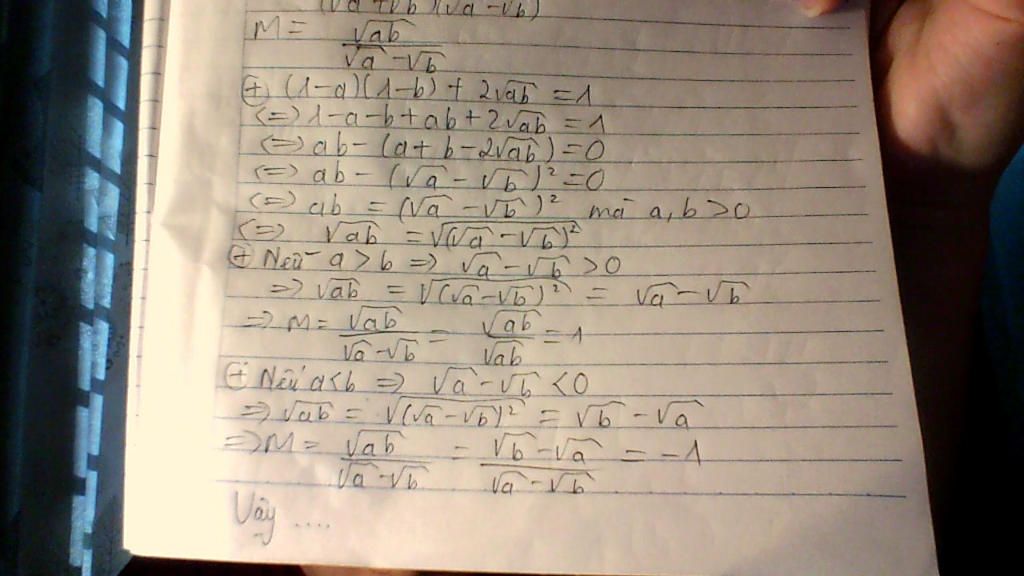 (√a+√b)(√a-√b)
M = √ab / (√a-√b)
⊕ (1-a)(1-b) + 2√ab = 1
<=> 1-a-b+ab+2√ab = 1
<=> ab-(a+b-2√ab)=0
<=> ab-(√a-√b)²=0
<=> ab = (√a-√b)² mà a,b >0
<=> √ab = √(√a-√b)²
⊕ Nếu a>b => √a-√b >0
=> √ab = √(√a-√b)² = √a-√b
=> M = √ab / (√a-√b) = √ab / √ab = 1
⊕ Nếu a<b => √a-√b <0
=> √ab = √(√a-√b)² = √b-√a
=> M = √ab / (√a-√b) = (√b-√a) / (√a-√b) = -1
Vậy ....